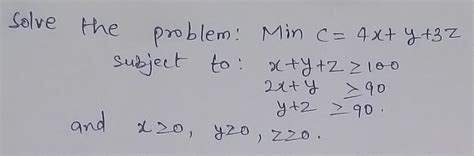 Solve the problem: Min C = 4x + y + 3z
subject to: x+y+z ≥ 100
2x+y ≥ 90
y+z ≥ 90.
and x≥0, y≥0, z≥0.